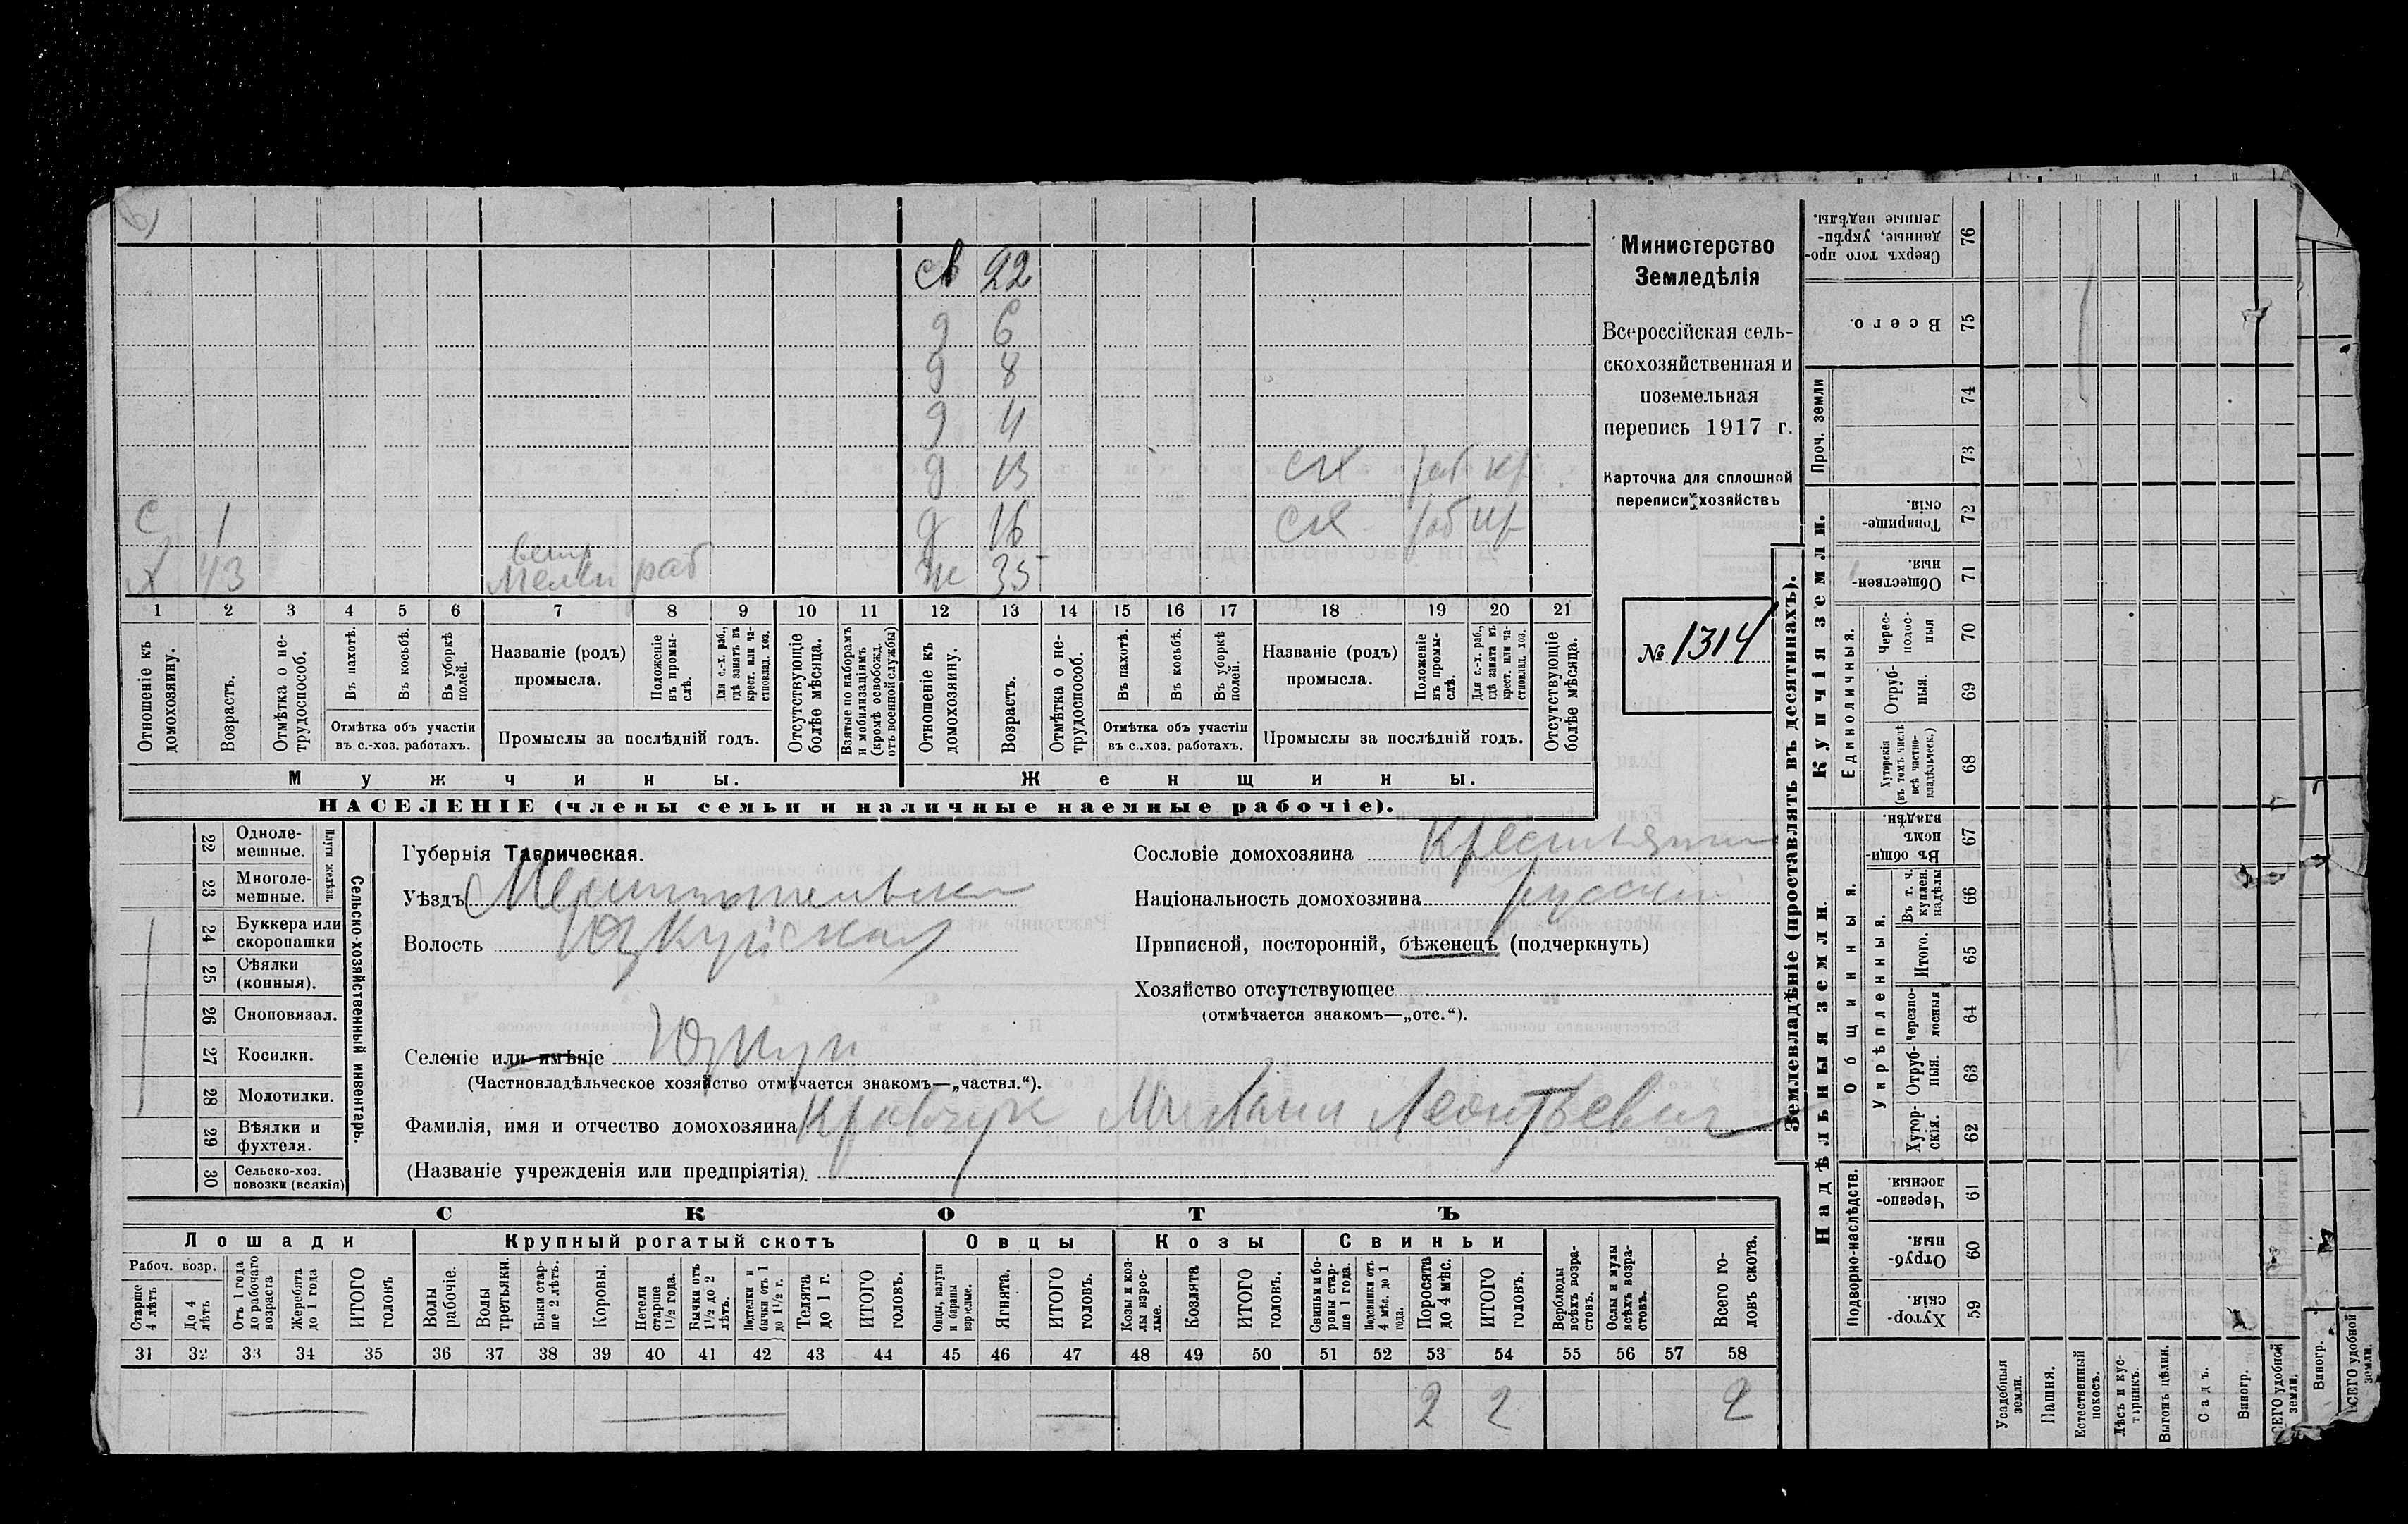 св 22
д 6
д 8
д 11
д 13 сх раб кр.
с 1 д 16 сх раб
х 43 раб ж 35
1 2 3 4 5 6 7 8 9 10 11 12 13 14 15 16 17 18 19 20 21
Отношеніе къ домохозяину.
Возрастъ.
Отмѣтка о не-трудоспособ.
Въ пахотѣ.
Въ косьбѣ.
Въ уборкѣ полей.
Отмѣтка объ участіи
въ с.-хоз. работахъ.
Названіе (родъ)
промысла.
Положеніе въ промы-слѣ.
Для с.-х. раб., гдѣ занятъ въ крест. или ча-стновлад. хоз.
Промыслы за послѣдній годъ.
Отсутствующіе болѣе мѣсяца.
Взятые по наборамъ и мобилизаціямъ (кромѣ освобожд. отъ военной службы)
Отношеніе къ домохозяину.
Возрастъ.
Отмѣтка о не-трудоспособ.
Въ пахотѣ.
Въ косьбѣ.
Въ уборкѣ полей.
Отмѣтка объ участіи
въ с.-хоз. работахъ.
Названіе (родъ)
промысла.
Положеніе въ промы-слѣ.
Для с.-х. раб., гдѣ занята въ крест. или ча-стновлад. хоз.
Промыслы за послѣдній годъ.
Отсутствующіе болѣе мѣсяца.
Мужчины.
Женщины.
НАСЕЛЕНІЕ (члены семьи и наличные наемные рабочіе).
Министерство
Земледѣлія
Всероссійская сель-
скохозяйственная и
поземельная
перепись 1917 г.
Карточка для сплошной
переписи хозяйствъ
№ 1314
22 Одноле-мешные.
23 Многоле-мешные.
Плуги желѣзн.
24 Буккера или скоропашки
25 Сѣялки (конныя).
26 Сноповязал.
27 Косилки.
28 Молотилки.
29 Вѣялки и фухтеля.
30 Сельско-хоз. повозки (всякія)
Сельско-хозяйственный инвентарь.
Губернія Таврическая.
Уѣздъ Мелитопольский
Волость Юзкуйская
Селеніе или имѣніе Юзкуи
(Частновладѣльческое хозяйство отмѣчается знакомъ—„частвл.“).
Фамилія, имя и отчество домохозяина Кравчук Михаил Леонтьевич
(Названіе учрежденія или предпріятія)
Сословіе домохозяина Крестьянин
Національность домохозяина русский
Приписной, посторонній, бѣженецъ (подчеркнуть)
Хозяйство отсутствующее
(отмѣчается знакомъ—„отс.“).
СКОТЪ
Лошади
Крупный рогатый скотъ
Овцы
Козы
Свиньи
Рабоч. возр.
Старше 4 лѣтъ
До 4 лѣтъ
Отъ 1 года до рабочаго возраста
Жеребята до 1 года
ИТОГО головъ
Волы рабочіе.
Волы третьяки.
Быки стар-ше 2 лѣтъ.
Коровы.
Нетели старше 1½ года.
Бычки отъ 1½ до 2 лѣтъ.
Подтелки и бычки отъ 1 до 1½ г.
Телята до 1 г.
ИТОГО головъ.
Овцы, валухи и бараны взрослые.
Ягнята.
ИТОГО головъ.
Козы и коз-лы взрос-лые.
Козлята
ИТОГО головъ.
Свиньи и бо-ровы стар-ше 1 года.
Подсвинки отъ 4 мѣс. до 1 года.
Поросята до 4 мѣс.
ИТОГО головъ.
Верблюды всѣхъ возра-стовъ.
Ослы и мулы всѣхъ возра-стовъ.
Всего го-ловъ скота.
31 32 33 34 35 36 37 38 39 40 41 42 43 44 45 46 47 48 49 50 51 52 53 54 55 56 57 58
2 2 2
Землевладѣніе (проставлять въ десятинахъ).
Надѣльныя земли.
Купчія земли.
Проч. земли
Подворно-наслѣдств.
Общинныя.
Укрѣпленныя.
Единоличныя.
Хутор-скія. 59
Отруб-ныя. 60
Черезпо-лосныя 61
Хутор-скія. 62
Отруб-ныя. 63
Черезпо-лосныя 64
Итого. 65
Въ т. ч. куплен. надѣлы 66
Въ общин-номъ владѣн. 67
Хуторскія (въ томъ числѣ всѣ частно-владѣльческ.) 68
Отруб-ныя. 69
Черес-полос-ныя 70
Обществен-ныя. 71
Товарище-скія. 72
73
74
Всего. 75
Сверхъ того про-данные, укрѣп-ленные надѣлы. 76
Усадебныя земли.
Пашня.
Естественный покосъ.
Лѣсъ и кус-тарникъ.
Выгонъ цѣлин.
Садъ.
Виногр.
ВСЕГО удобной земли.
Виногр.
ВСЕГО удобной земли.